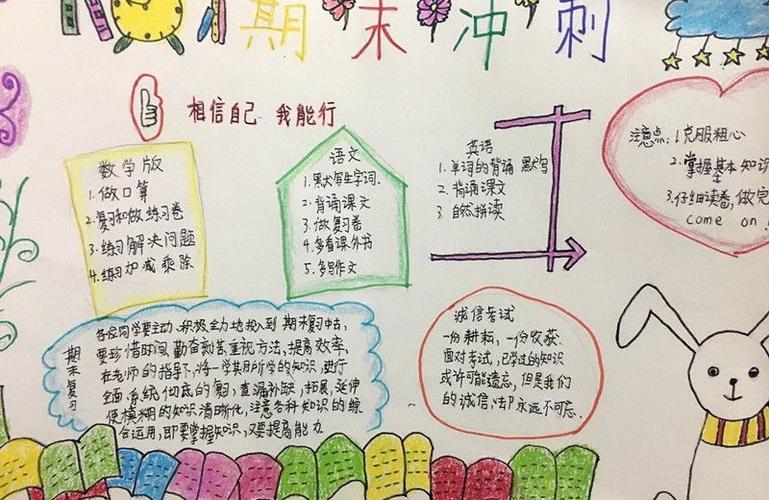 期末冲刺
相信自己 我能行
数学版
1.做口算
2.复习和做练习卷
3.练习解决问题
4.练习加减乘除
语文
1.默写生字词.
2.背诵课文
3.做复习卷
4.多看课外书
5.多写作文
英语
1.单词的背诵 默写
2.背诵课文
3 自然拼读
注意点: 1.克服粗心
2.掌握基本知识
3.仔细读卷,做完
come on!
期末复习
各位同学要主动、积极、全力地投入到期末复习中去,
要珍惜时间,勤奋刻苦重视方法,提高效率,
在老师的指导下,将一学期所学的知识,进行
全面、系统、彻底的复习,查漏补缺,拓展,延伸
使模糊的知识清晰化,注意各种知识的综
合运用,即要掌握知识,又要提高能力
诚信考试
一份耕耘,一份收获.
面对考试,已学过的知识
或许可能遗忘,但是我们
的诚信,却永远不可忘.